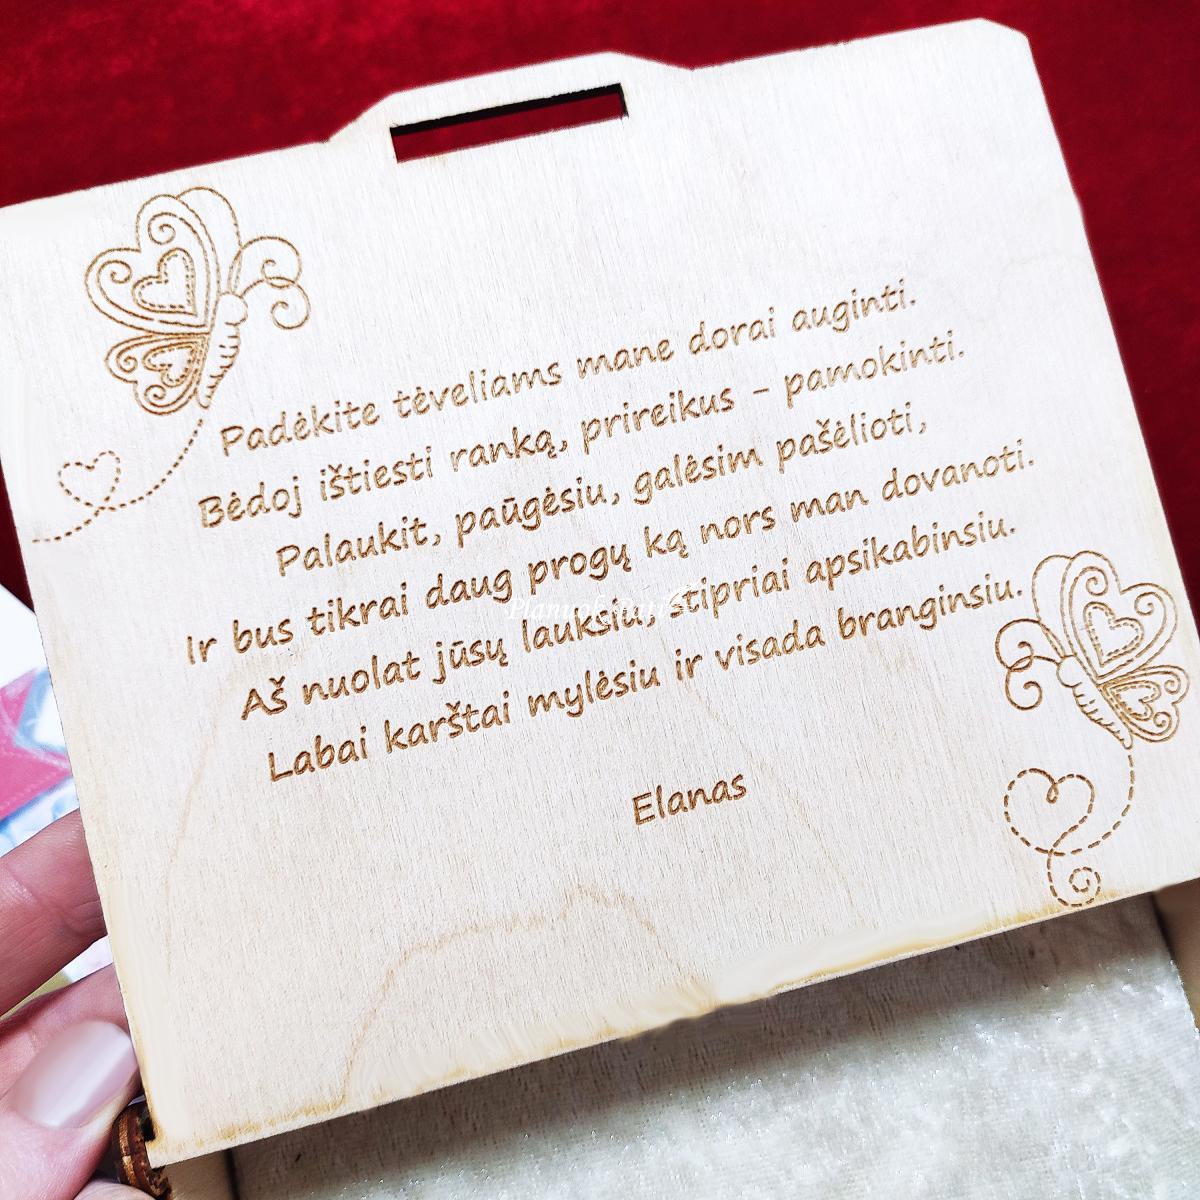 Padėkite tėveliams mane dorai auginti.
Bėdoj ištiesti ranką, prireikus - pamokinti.
Palaukit, paūgėsiu, galėsim pašėlioti,
Ir bus tikrai daug progų ką nors man dovanoti.
Aš nuolat jūsų lauksiu, stipriai apsikabinsiu.
Labai karštai mylėsiu ir visada branginsiu.
Elanas
Planuok Pati